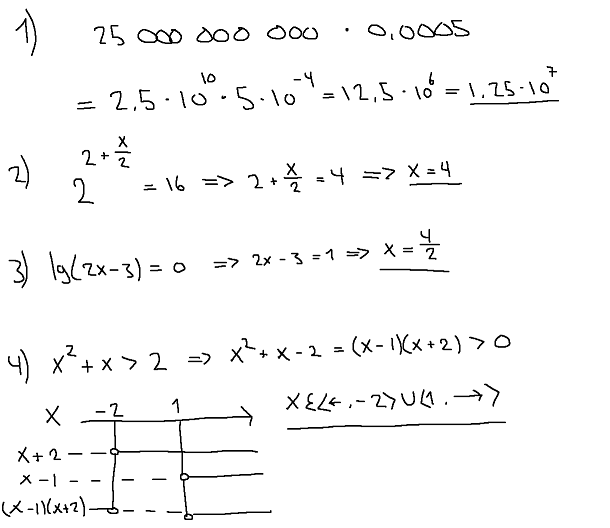 1) 25 000 000 000 · 0,0005
= 2,5 · 10^10 · 5 · 10^-4 = 12,5 · 10^6 = 1,25 · 10^7
2) 2^(2 + x/2) = 16 => 2 + x/2 = 4 => x = 4
3) lg(2x-3) = 0 => 2x - 3 = 1 => x = 4/2
4) x^2 + x > 2 => x^2 + x - 2 = (x-1)(x+2) > 0
x -2 1
x ∈ <←, -2> ∪ <1, →>
x + 2
x - 1
(x-1)(x+2)